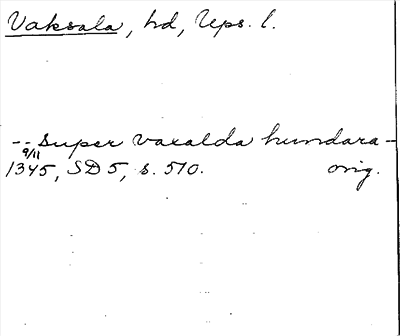 Vaksala, hd, Ups. l.
-- super vaxalda hundara -
9/11
1345, SD 5, s. 510. orig.